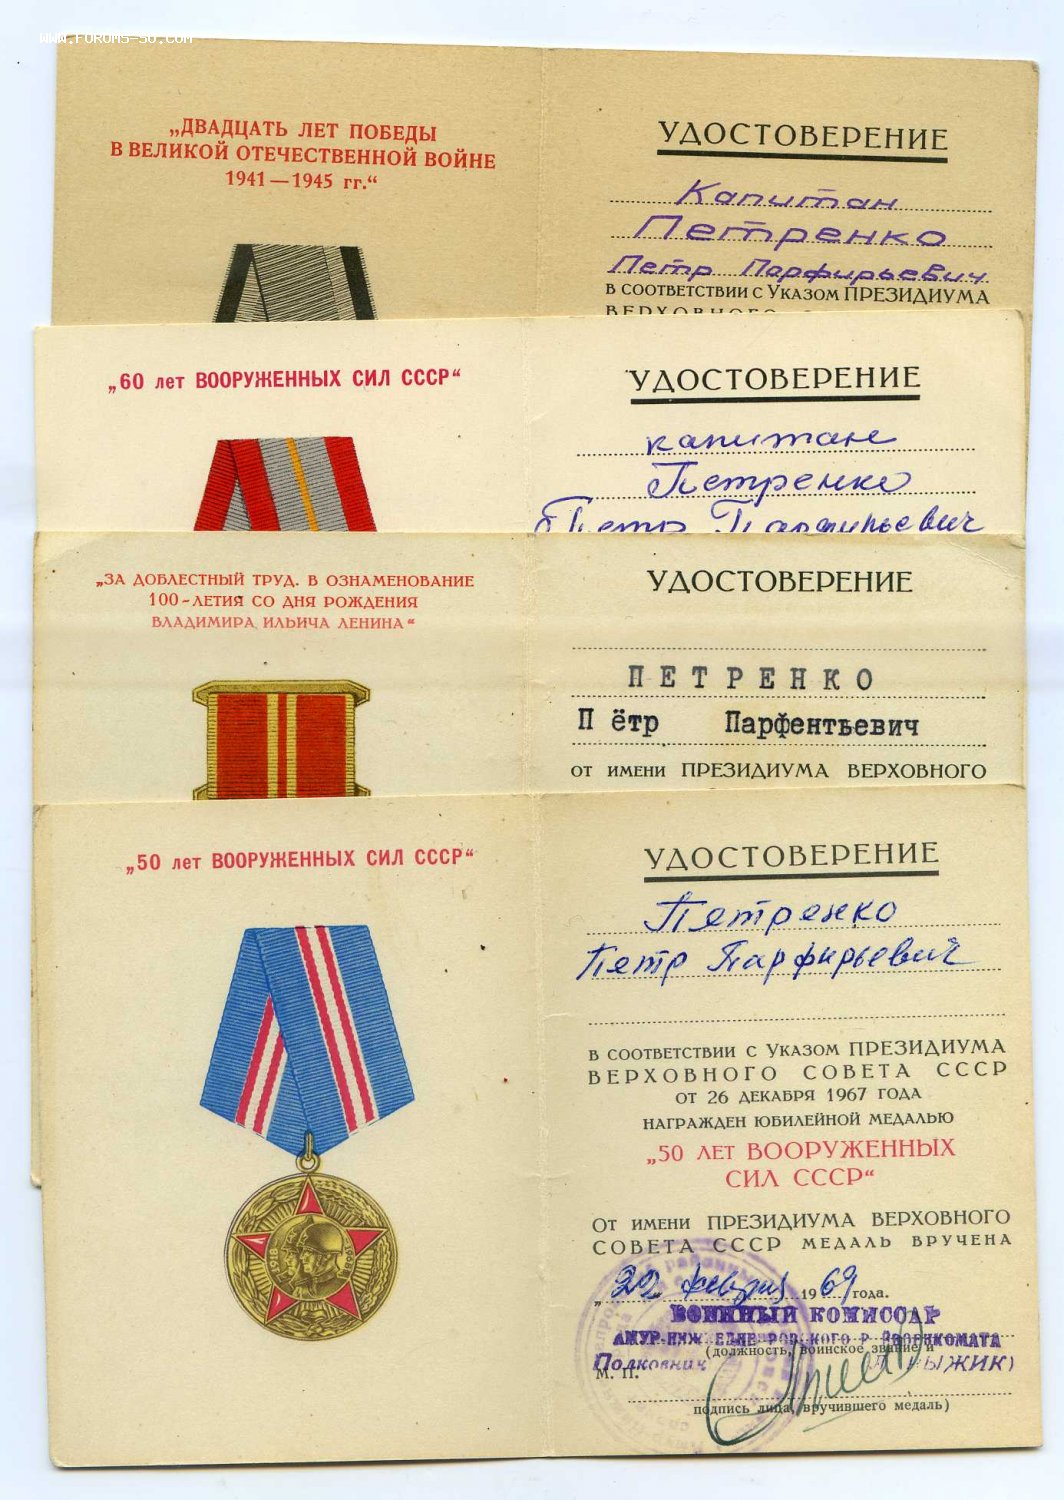 www.FORUMS-SU.COM
„ДВАДЦАТЬ ЛЕТ ПОБЕДЫ
В ВЕЛИКОЙ ОТЕЧЕСТВЕННОЙ ВОЙНЕ
1941—1945 гг.“
УДОСТОВЕРЕНИЕ
Капитан
Петренко
Петр Парфирьевич
В СООТВЕТСТВИИ С УКАЗОМ ПРЕЗИДИУМА
ВЕРХОВНОГО
„60 лет ВООРУЖЕННЫХ СИЛ СССР“
УДОСТОВЕРЕНИЕ
капитан
Петренко
Петр Парфирьевич
„ЗА ДОБЛЕСТНЫЙ ТРУД. В ОЗНАМЕНОВАНИЕ
100-ЛЕТИЯ СО ДНЯ РОЖДЕНИЯ
ВЛАДИМИРА ИЛЬИЧА ЛЕНИНА“
УДОСТОВЕРЕНИЕ
ПЕТРЕНКО
Пётр Парфентьевич
ОТ ИМЕНИ ПРЕЗИДИУМА ВЕРХОВНОГО
„50 лет ВООРУЖЕННЫХ СИЛ СССР“
1918 1968
УДОСТОВЕРЕНИЕ
Петренко
Петр Парфирьевич
В СООТВЕТСТВИИ С УКАЗОМ ПРЕЗИДИУМА
ВЕРХОВНОГО СОВЕТА СССР
ОТ 26 ДЕКАБРЯ 1967 ГОДА
НАГРАЖДЕН ЮБИЛЕЙНОЙ МЕДАЛЬЮ
„50 ЛЕТ ВООРУЖЕННЫХ
СИЛ СССР“
ОТ ИМЕНИ ПРЕЗИДИУМА ВЕРХОВНОГО
СОВЕТА СССР МЕДАЛЬ ВРУЧЕНА
„22 февраля 1969 года.
ВОЕННЫЙ КОМИССАР
(должность, воинское звание и
Полковник
М. П.
подпись лица, вручившего медаль)